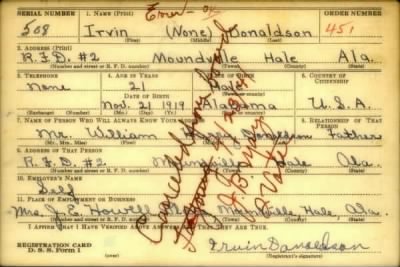 SERIAL NUMBER 1. NAME (Print) Error - ORDER NUMBER
508 Irvin (None) Donaldson 451
(First) (Middle) (Last)
2. ADDRESS (Print)
R.F.D. #2 Moundville Hale Ala.
(Number and street or R. F. D. number) (Town) (County) (State)
3. TELEPHONE 4. AGE IN YEARS 5. PLACE OF BIRTH 6. COUNTRY OF CITIZENSHIP
None 21 Hale
DATE OF BIRTH (Town or county)
Nov. 21 1919 Alabama U.S.A.
(Exchange) (Number) (Mo.) (Day) (Yr.) (State or country)
7. NAME OF PERSON WHO WILL ALWAYS KNOW YOUR ADDRESS 8. RELATIONSHIP OF THAT PERSON
Mr. William Donaldson Father
(Mr., Mrs., Miss) (First) (Middle) (Last)
9. ADDRESS OF THAT PERSON
R.F.D. #2 Moundville Hale Ala.
(Number and street or R. F. D. number) (Town) (County) (State)
10. EMPLOYER'S NAME
Self
11. PLACE OF EMPLOYMENT OR BUSINESS
Mrs. J.E. Howell Moundville Hale, Ala.
(Number and street or R. F. D. number) (Town) (County) (State)
I AFFIRM THAT I HAVE VERIFIED ABOVE ANSWERS AND THAT THEY ARE TRUE.
REGISTRATION CARD
D. S. S. Form 1 Irvin Donaldson
(Registrant's signature)
Cancelled